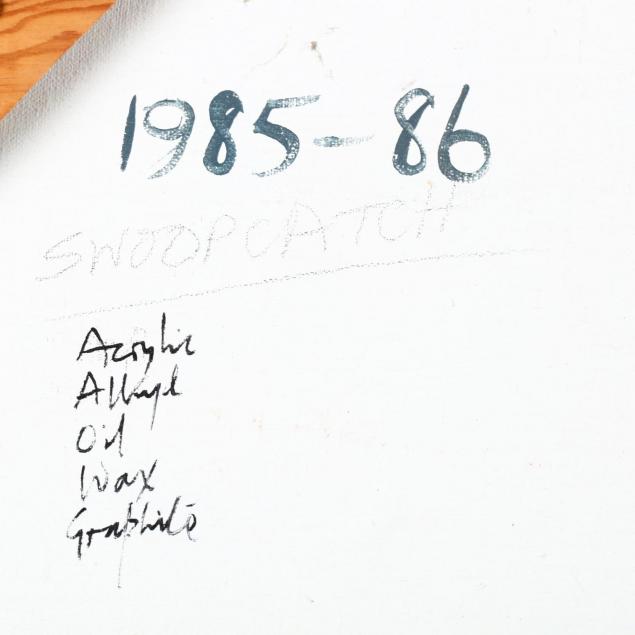 1985-86
SWOOPCATCH
Acrylic
Alkyd
Oil
Wax
Graphite